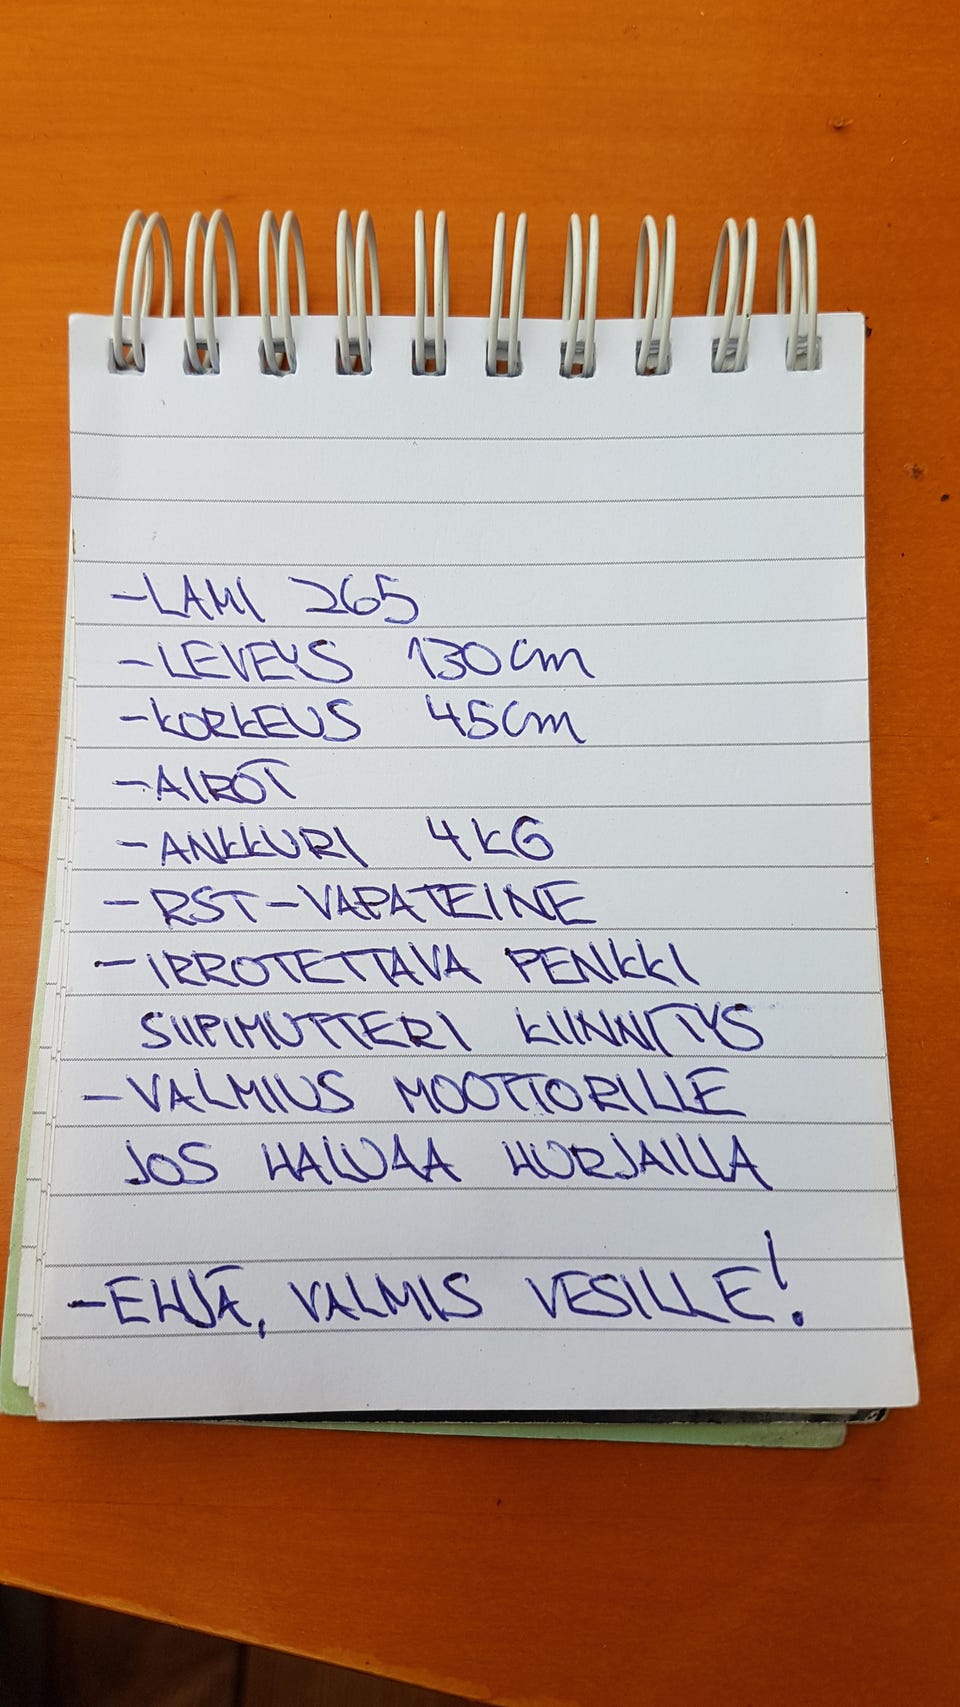 -LAMI 265
-LEVEYS 130cm
-KORKEUS 45cm
-AIROT
-ANKKURI 4KG
-RST-VAPATEINE
-IRROTETTAVA PENKKI
SIIPIMUTTERI KIINNITYS
-VALMIUS MOOTTORILLE
JOS HALUAA HURJAILLA
-EHJÄ, VALMIS VESILLE!